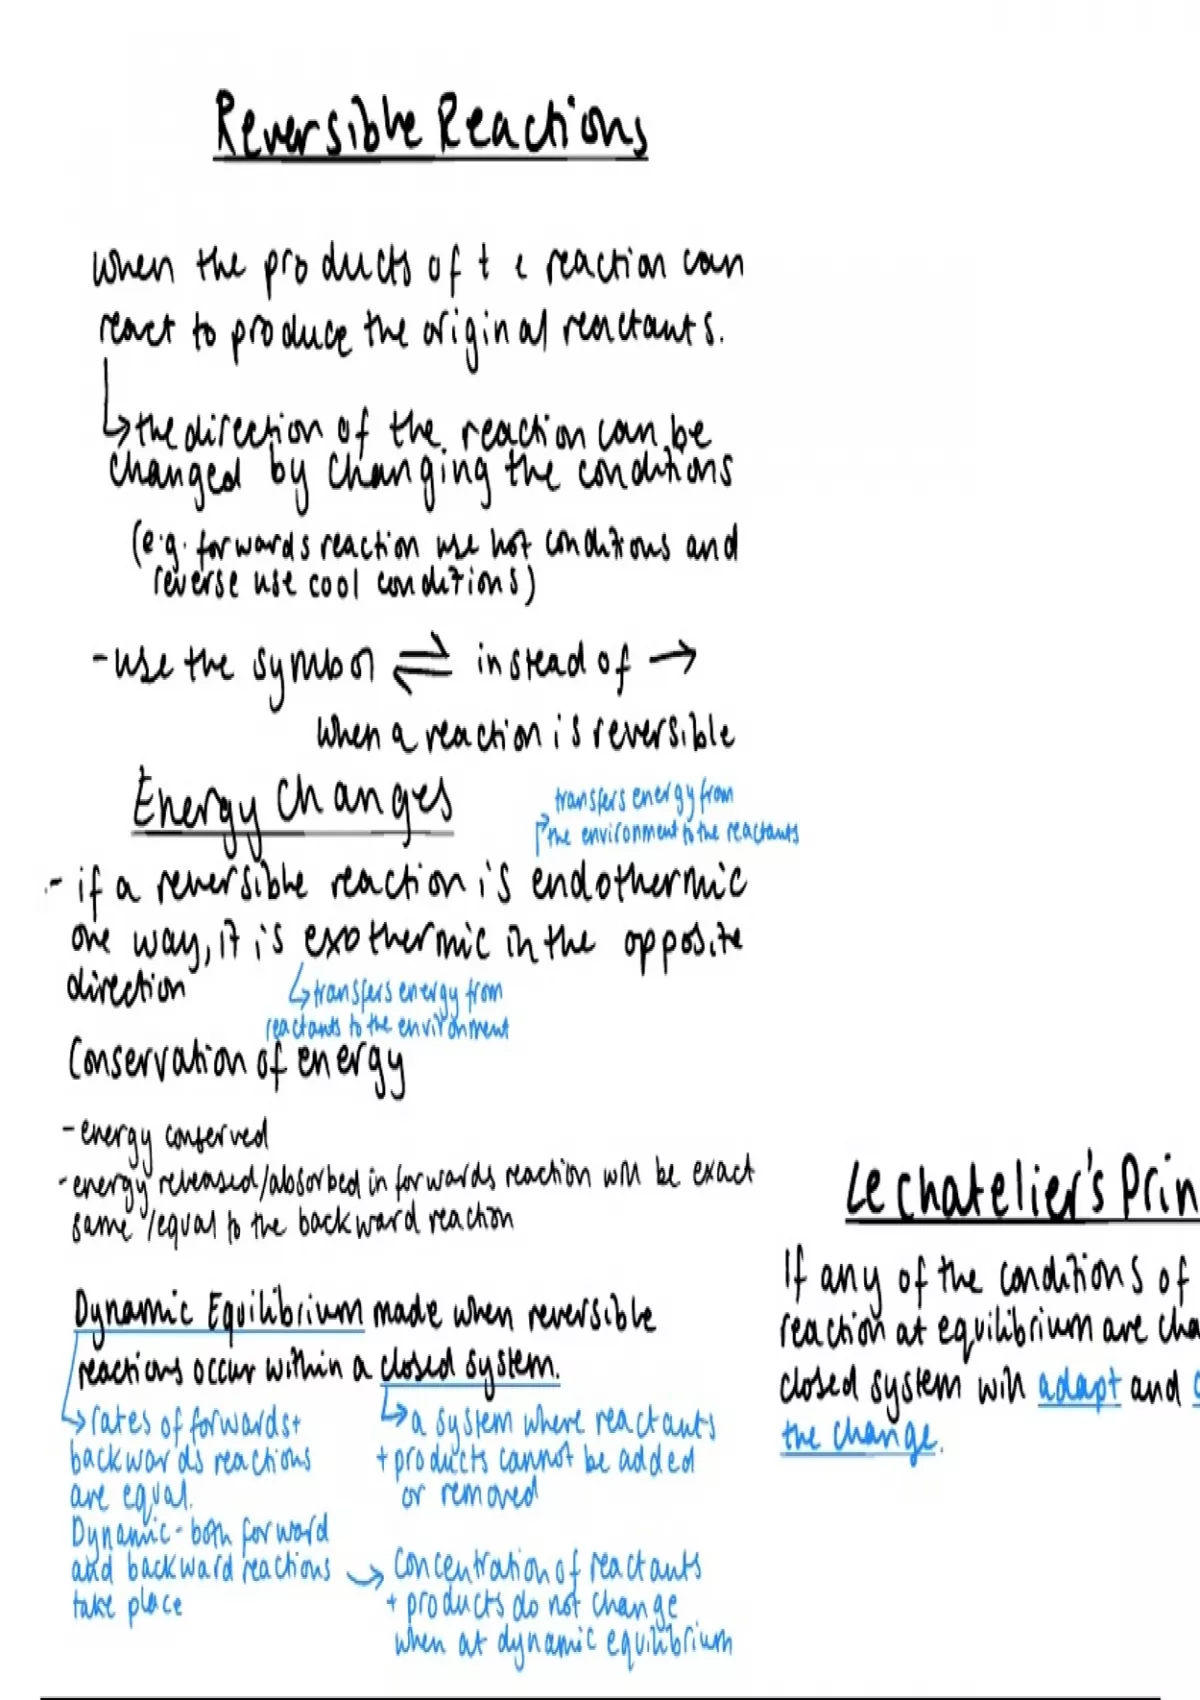 Reversible Reactions
when the products of t e reaction can
react to produce the original reactants.
↳ the direction of the reaction can be
changed by changing the conditions
(e.g. forwards reaction use hot conditions and
reverse use cool conditions)
- use the symbol ⇌ instead of →
when a reaction is reversible
Energy Changes
transfers energy from
the environment to the reactants
- if a reversible reaction is endothermic
one way, it is exothermic in the opposite
direction
↳ transfers energy from
reactants to the environment
Conservation of energy
- energy conserved
- energy released/absorbed in forwards reaction will be exact
same /equal to the backward reaction
Dynamic Equilibrium made when reversible
reactions occur within a closed system.
↳ rates of forwards +
backwards reactions
are equal.
Dynamic - both forward
and backward reactions
take place
↳ a system where reactants
+ products cannot be added
or removed
→ Concentration of reactants
+ products do not change
when at dynamic equilibrium
Le chatelier's Prin
If any of the conditions of
reaction at equilibrium are cha
closed system will adapt and
the change.